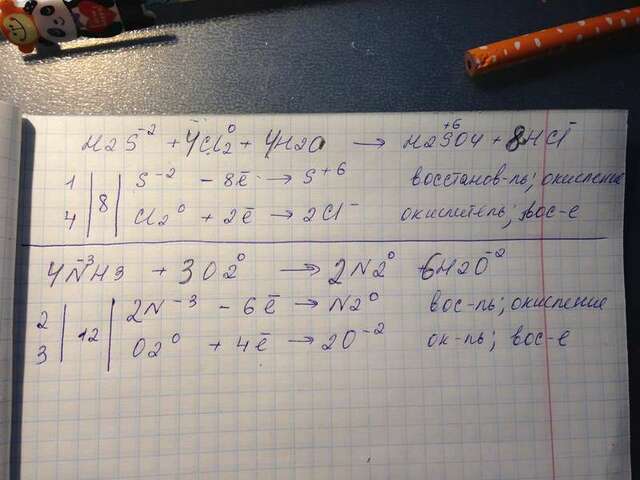 H2S⁻² + 4Cl2⁰ + 4H2O → H2S⁺⁶O4 + 8HCl⁻
1 | 8 | S⁻² - 8ē → S⁺⁶ восстанов-ль; окисление
4 | Cl2⁰ + 2ē → 2Cl⁻ окислитель; вос-е
4N⁻³H3 + 3O2⁰ → 2N2⁰ 6H2O⁻²
2 | 12 | 2N⁻³ - 6ē → N2⁰ вос-ль; окисление
3 | O2⁰ + 4ē → 2O⁻² ок-ль; вос-е